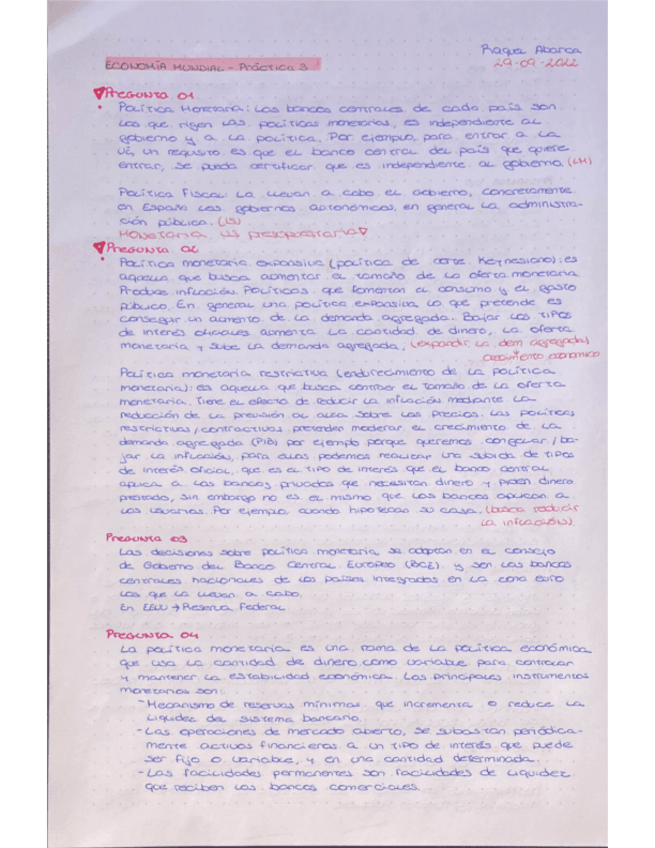 Raquel Abarca
ECONOMÍA MUNDIAL - PRÁCTICA 3
29-09-2022
PREGUNTA 01
• Política Monetaria: Los bancos centrales de cada país son
los que rigen las políticas monetarias, es independiente al
gobierno y a la política. Por ejemplo, para entrar a la
UE, un requisito es que el banco central del país que quiere
entrar, se pueda certificar que es independiente al gobierno. (LM)
Política Fiscal: La llevan a cabo el gobierno, concretamente
en España los gobiernos autonómicos, en general la administra-
ción pública. (LS)
Monetaria presupuestaria
PREGUNTA 02
• Política monetaria expansiva (política de corte Keynesiano): es
aquella que busca aumentar el tamaño de la oferta monetaria
Produce inflación. Políticas que fomentan el consumo y el gasto
público. En general una política expansiva lo que pretende es
conseguir un aumento de la demanda agregada. Bajar los tipos
de interés oficiales aumenta la cantidad de dinero, la oferta
monetaria y sube la demanda agregada. (expandir la dem agregada)
crecimiento económico
Política monetaria restrictiva (endurecimiento de la política
monetaria): es aquella que busca controlar el tamaño de la oferta
monetaria. Tiene el efecto de reducir la inflación mediante la
reducción de la presión al alza sobre los precios. Las políticas
restrictivas/contractivas pretenden moderar el crecimiento de la
demanda agregada (PIB) por ejemplo porque queremos congelar/ba-
jar la inflación, para ellas podemos realizar una subida de tipos
de interés oficial, que es el tipo de interés que el banco central
aplica a los bancos privados que necesitan dinero y piden dinero
prestado, sin embargo no es el mismo que los bancos aplican a
los usuarios. Por ejemplo, cuando hipotecan su casa. (busca reducir
la inflación).
PREGUNTA 03
Las decisiones sobre política monetaria se adoptan en el consejo
de Gobierno del Banco Central Europeo (BCE) y son los bancos
centrales nacionales de los países integrados en la zona euro
los que la llevan a cabo.
En EEUU → Reserva Federal
PREGUNTA 04
La política monetaria es una rama de la política económica
que usa la cantidad de dinero como variable para controlar
y mantener la estabilidad económica. Los principales instrumentos
monetarios son:
- Mecanismo de reservas mínimas que incrementa o reduce la
liquidez del sistema bancario.
- Las operaciones de mercado abierto, se subastan periódica-
mente activos financieros a un tipo de interés que puede
ser fijo o variable, y en una cantidad determinada.
- Las facilidades permanentes son facilidades de liquidez
que reciben los bancos comerciales.